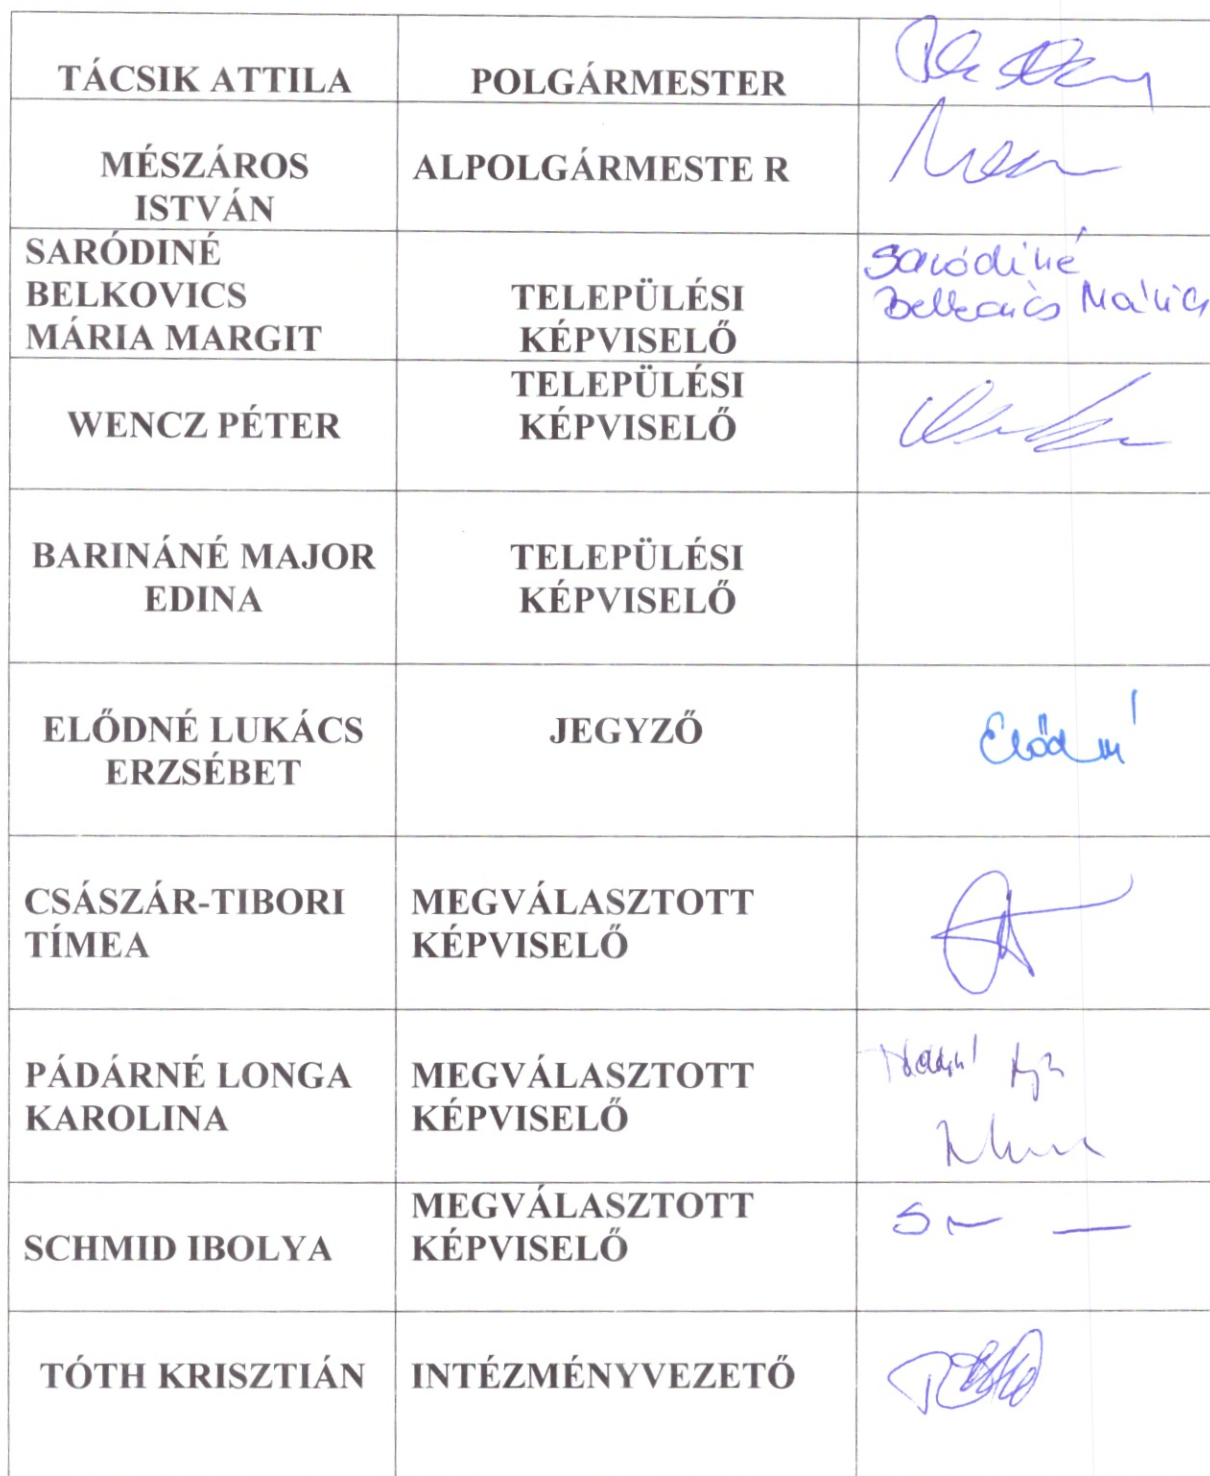 TÁCSIK ATTILA POLGÁRMESTER
MÉSZÁROS ALPOLGÁRMESTE R
ISTVÁN
SARÓDINÉ
BELKOVICS
MÁRIA MARGIT
TELEPÜLÉSI
KÉPVISELŐ
Saródiné
Belkovics Mária
WENCZ PÉTER
TELEPÜLÉSI
KÉPVISELŐ
BARINÁNÉ MAJOR
EDINA
TELEPÜLÉSI
KÉPVISELŐ
ELŐDNÉ LUKÁCS
ERZSÉBET
JEGYZŐ
Elődné
CSÁSZÁR-TIBORI
TÍMEA
MEGVÁLASZTOTT
KÉPVISELŐ
PÁDÁRNÉ LONGA
KAROLINA
MEGVÁLASZTOTT
KÉPVISELŐ
SCHMID IBOLYA
MEGVÁLASZTOTT
KÉPVISELŐ
TÓTH KRISZTIÁN INTÉZMÉNYVEZETŐ